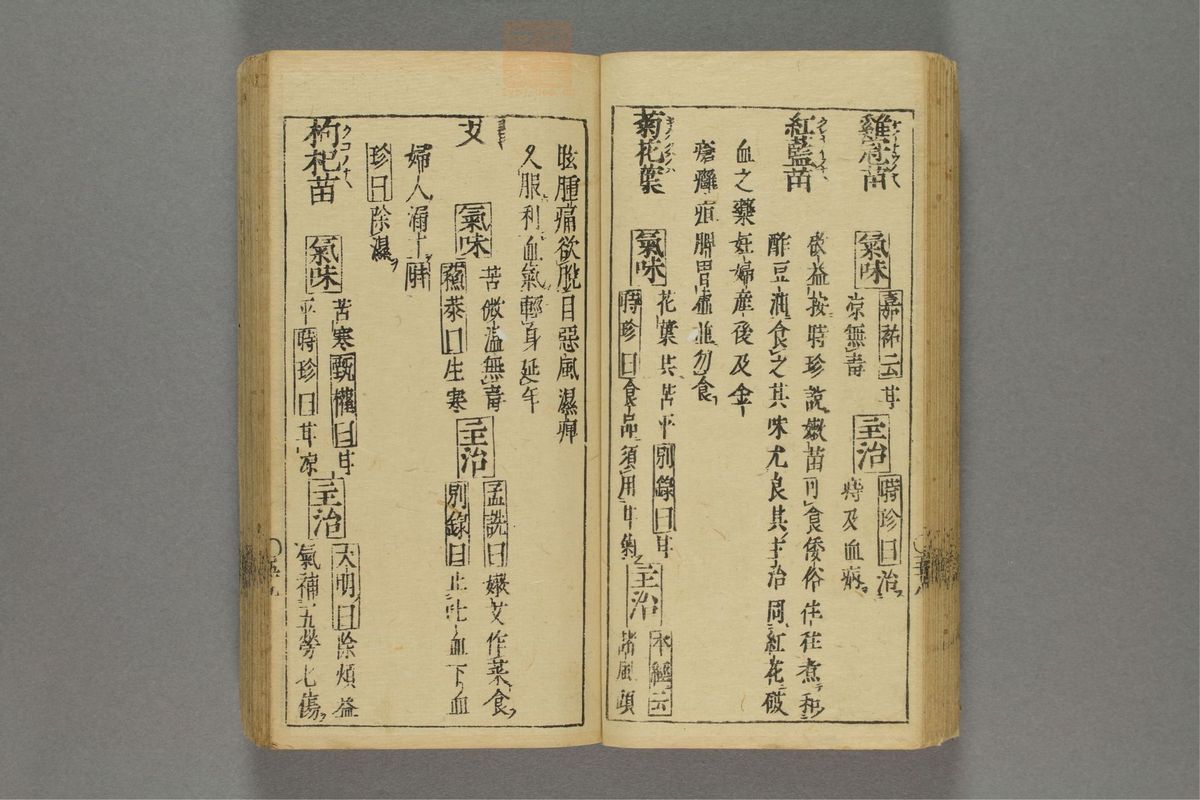 雞冠苗 氣味 嘉祐云甘
凉無毒 主治 時珍曰治
痔及血病
紅藍苗 倣益按時珍說嫩苗可食倭俗往往煮和
酢豆油食之其味尤良其主治同紅花破
血之藥妊婦產後及金
瘡癰疽脾胃虛並勿食
菊花葉 氣味 花葉共苦平別錄曰甘
時珍曰食品須用甘菊 主治 本經云
諸風頭
眩腫痛欲脫目惡風濕痺
久服利血氣輕身延年
艾 氣味 苦微溫無毒
蘇恭曰生寒 主治 孟詵曰嫩艾作菜食
別錄曰止吐血下血
婦人漏十時
珍曰除濕
枸杞苗 氣味 苦寒甄權曰甘
平時珍曰甘凉 主治 大明曰除煩益
氣補五勞七傷